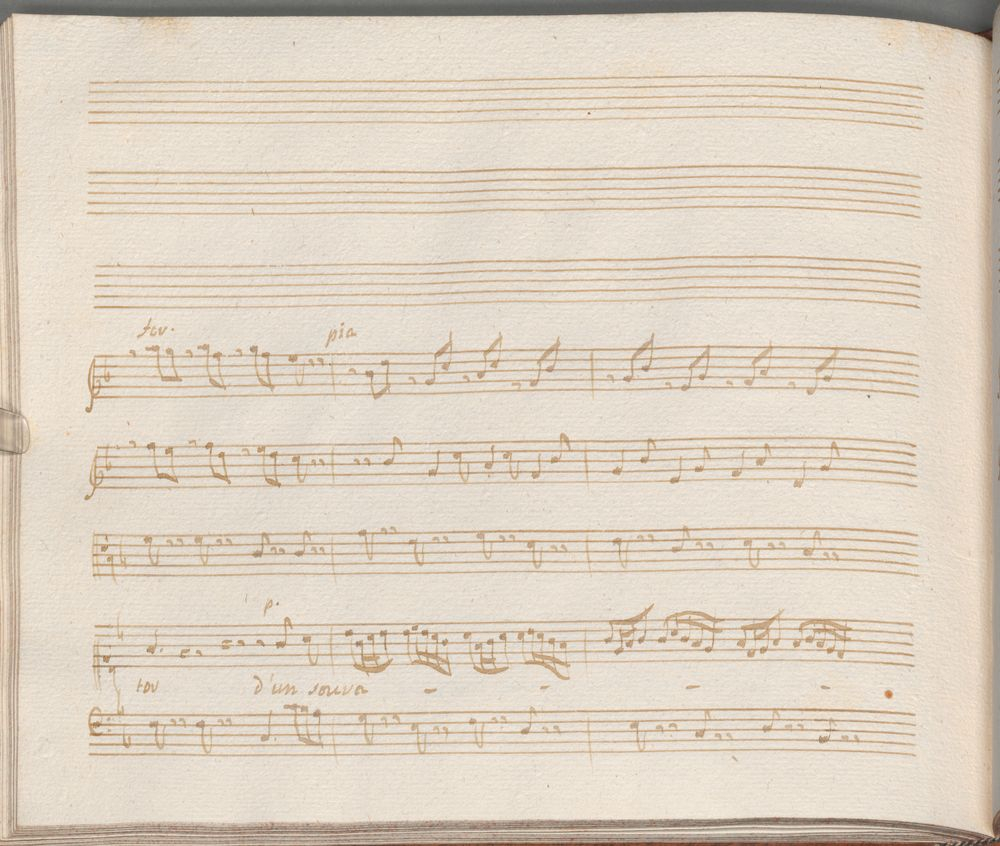 for.
pia
p.
tor d'un sovra - - - -